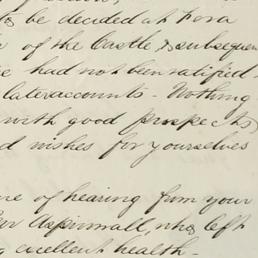 to be decided at
of the Castle & subsequen
had not been ratified
later accounts - Nothing
with good prospects
d wishes for yourselves
re of hearing from your
Aspinwall, who left
excellent health -